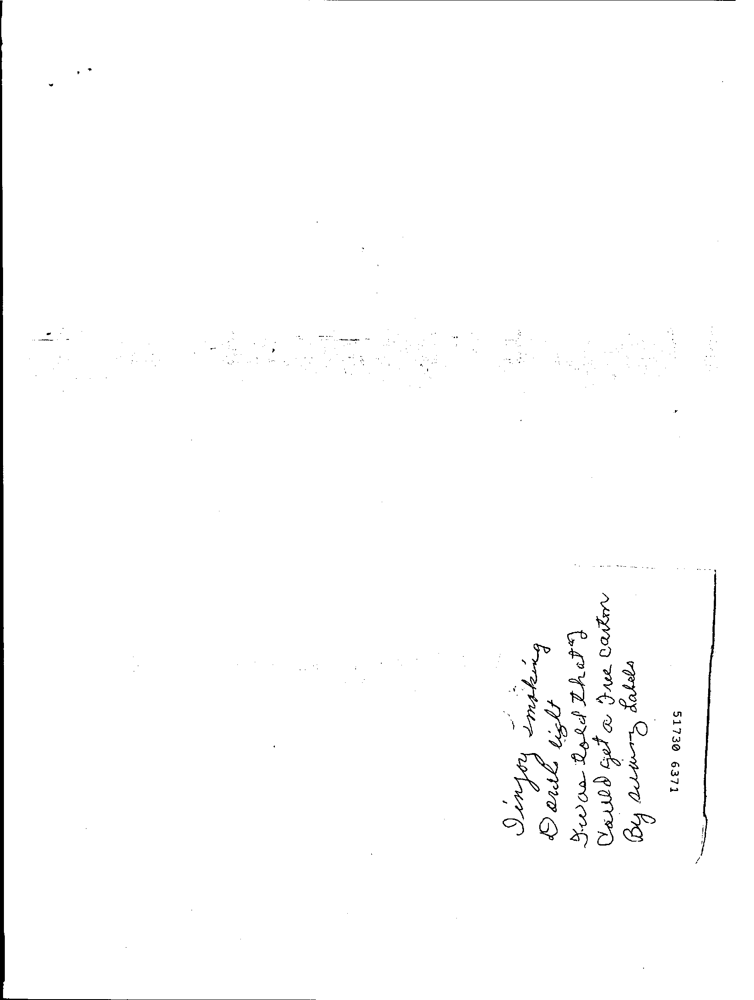 I injoy smoking
Doral light
I was told that I
Could get a Free carton
By Labels
51730 6371